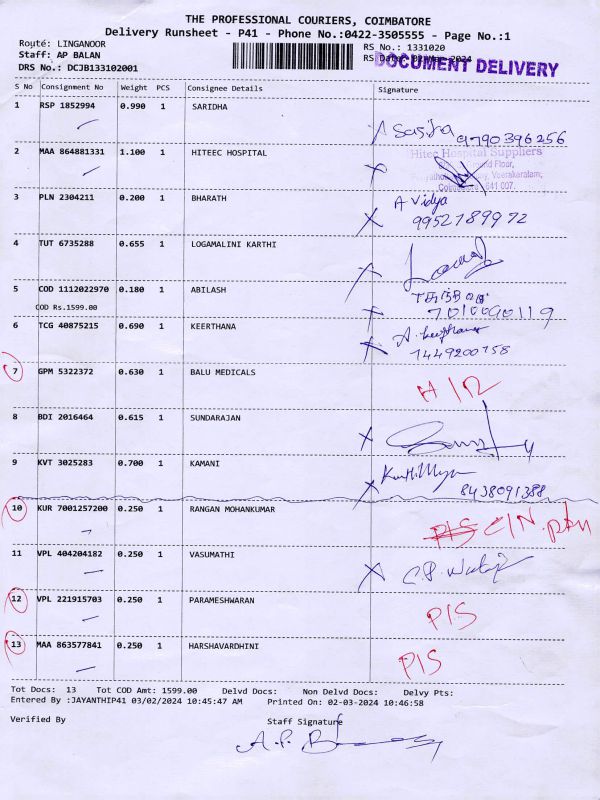 THE PROFESSIONAL COURIERS, COIMBATORE
Delivery Runsheet - P41 - Phone No.:0422-3505555 - Page No.:1
Route: LINGANOOR
RS No.: 1331020
Staff: AP BALAN
RS Date: 02-Mar-2024
DOCUMENT DELIVERY
DRS No.: DCJB133102001
S No Consignment No Weight PCS Consignee Details Signature
1 RSP 1852994 0.990 1 SARIDHA
9790396256
2 MAA 864881331 1.100 1 HITEEC HOSPITAL
Hitec Hospital Suppliers
Ground Floor,
Veerakeralam,
641 007.
3 PLN 2304211 0.200 1 BHARATH A Vidya
9952789972
4 TUT 6735288 0.655 1 LOGAMALINI KARTHI
5 COD 1112022970 0.180 1 ABILASH
COD Rs.1599.00
6 TCG 40875215 0.690 1 KEERTHANA A. Keerthana
7 GPM 5322372 0.630 1 BALU MEDICALS
8 BDI 2016464 0.615 1 SUNDARAJAN
9 KVT 3025283 0.700 1 KAMANI
8438091388
10 KUR 7001257200 0.250 1 RANGAN MOHANKUMAR
11 VPL 404204182 0.250 1 VASUMATHI
12 VPL 221915703 0.250 1 PARAMESHWARAN P/S
13 MAA 863577841 0.250 1 HARSHAVARDHINI P/S
Tot Docs: 13 Tot COD Amt: 1599.00 Delvd Docs: Non Delvd Docs: Delvy Pts:
Entered By :JAYANTHIP41 03/02/2024 10:45:47 AM Printed On: 02-03-2024 10:46:58
Verified By Staff Signature